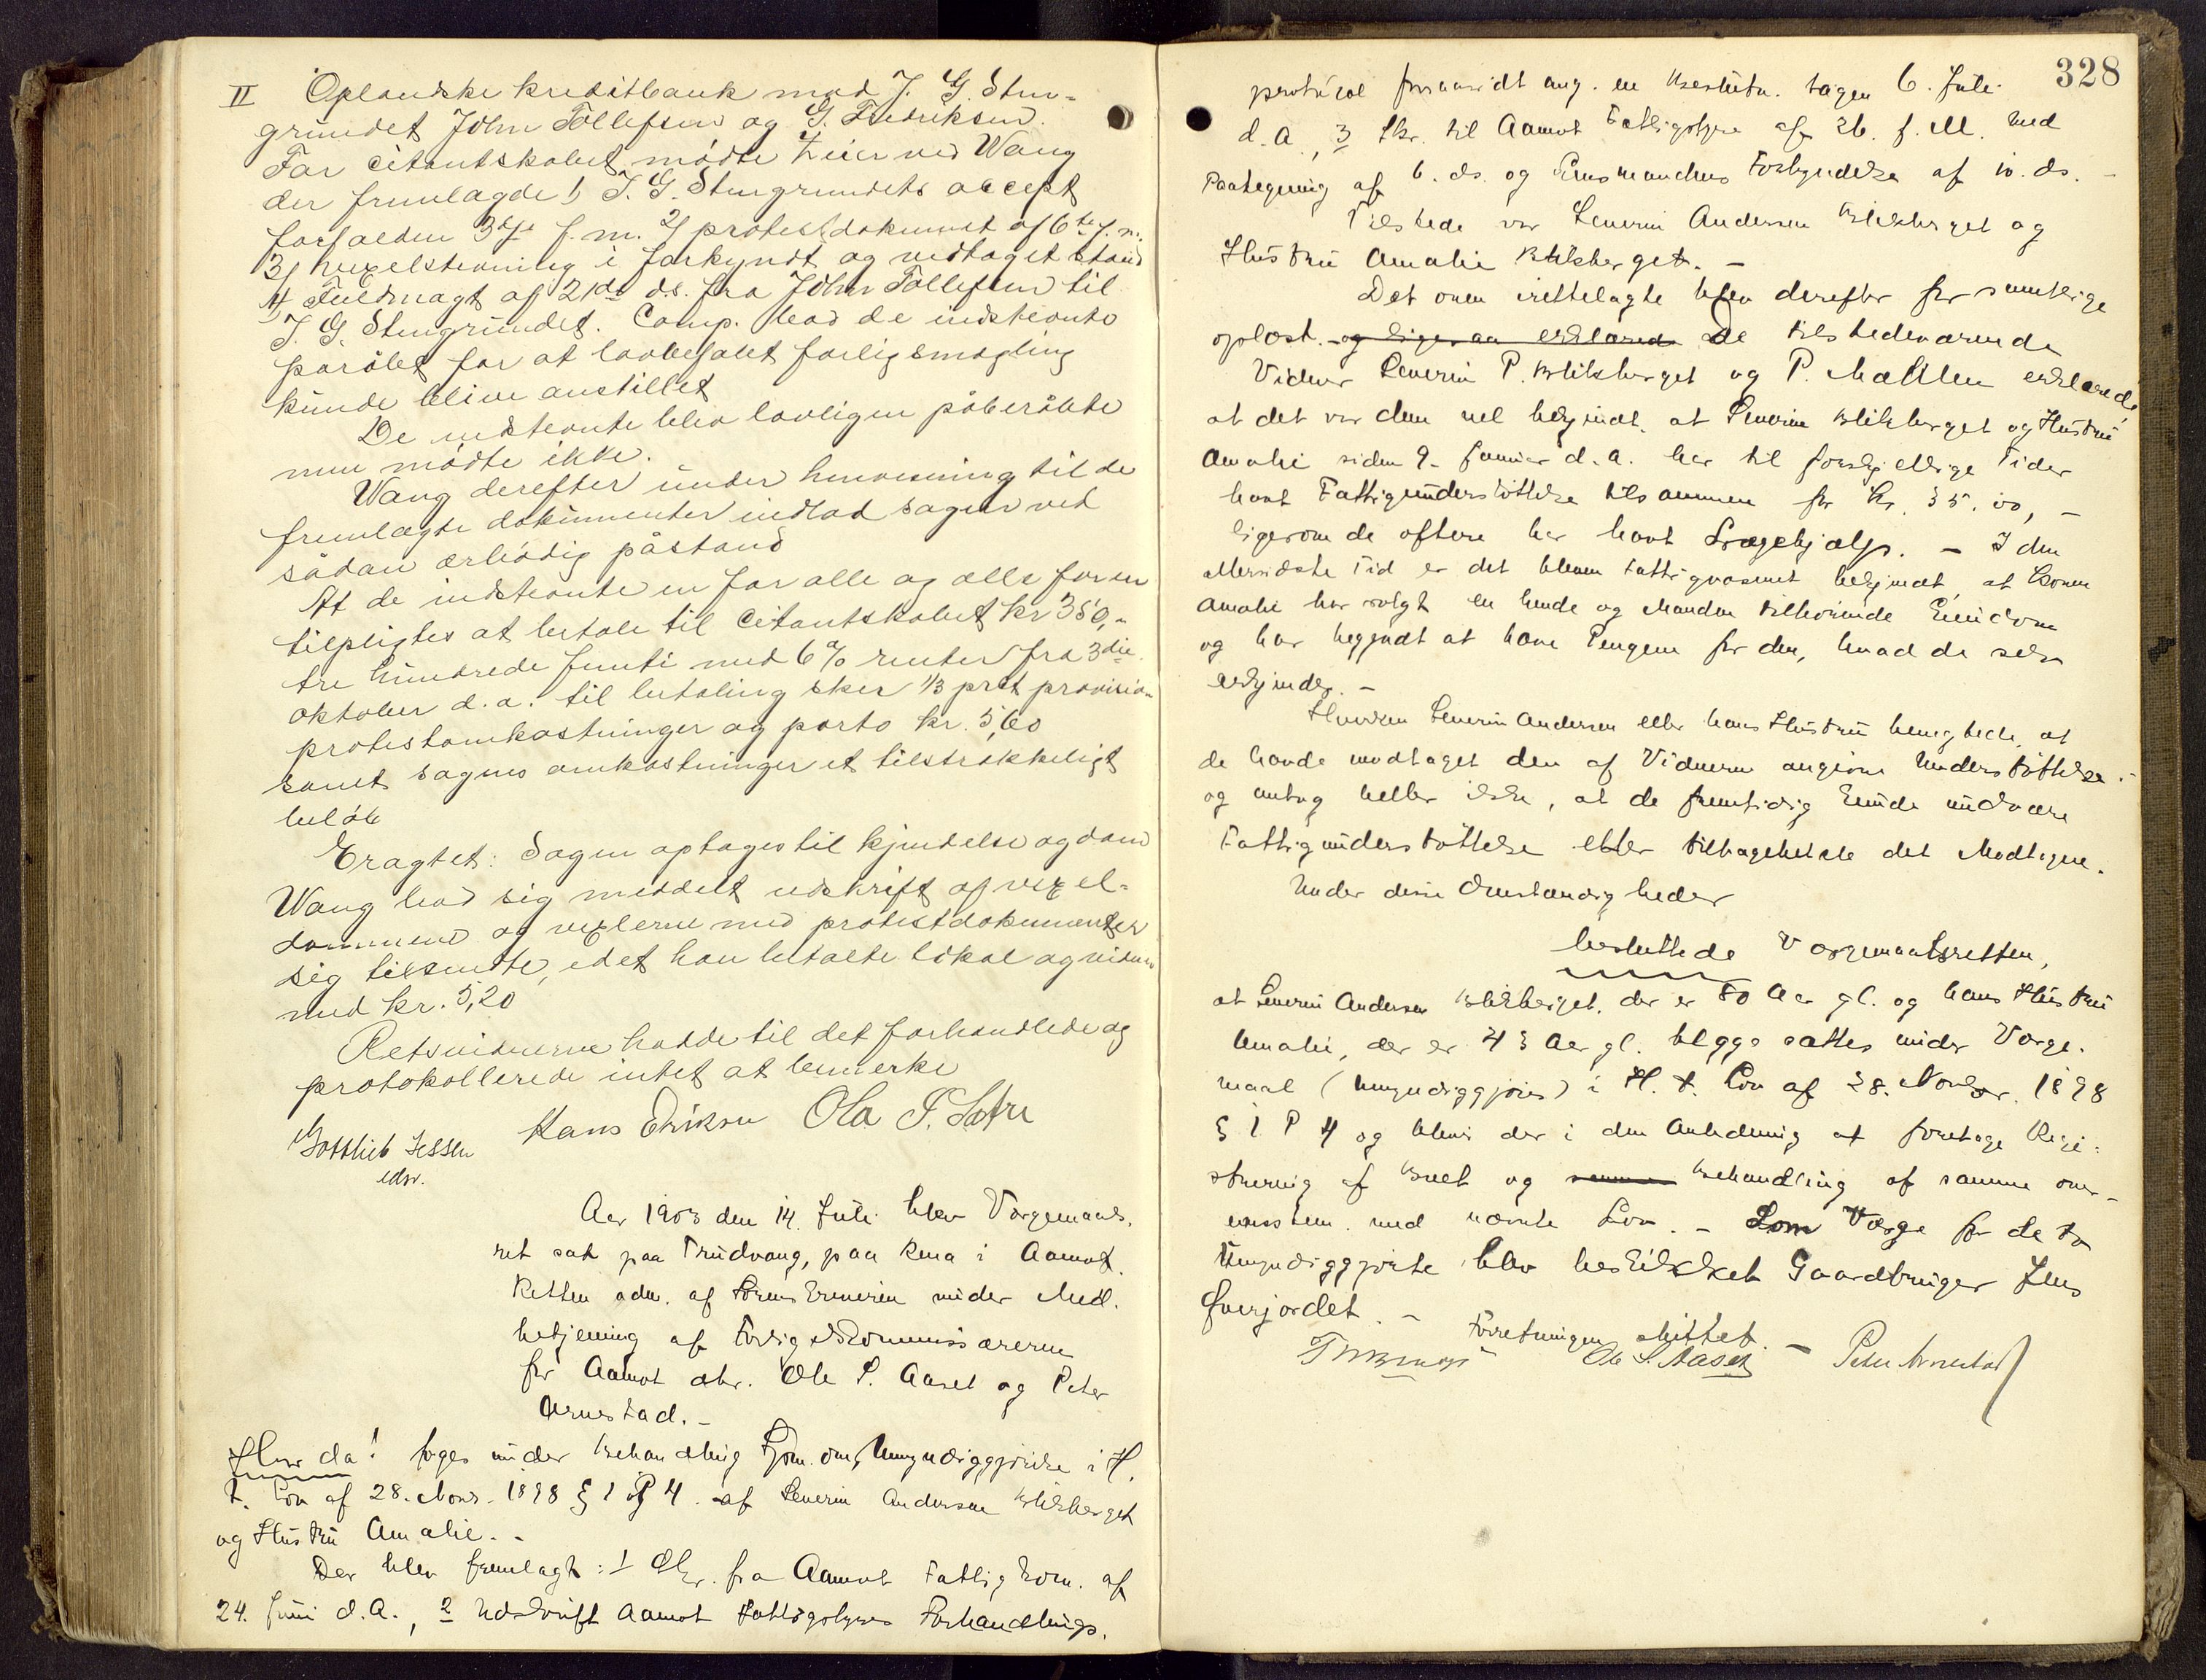 II Oplandske kreditbank mod J. G. Sten-
grundet John Tollefsen og G. Fredriksen.
For citantskabet mødte Zeier ved Wang
der fremlagde 1) J. G. Stengrundets accept
forfalden 3dje f. m. 2) protestdokument af 6te f. m.
3) vexelstevning i forkyndt og vedtaget stand
4) Fuldmagt af 21de ds. fra John Tollefsen til
J. G. Stengrundet. Comp. bad de indstevnte
paråbt for at lovbefalet forligsmægling
kunde blive anstillet
De indstevnte blev lovligen påberåbte
men mødte ikke.
Wang derefter under henvisning til de
fremlagte dokumenter indlod sagen ved
sådan ærbødig påstand
At de indstevnte en for alle og alle for en
tilpligtes at betale til Citantskabet kr 350,-
tre hundrede femti med 6% renter fra 3die
oktober d. a. til betaling sker 1/3 prct provision
protestomkostninger og porto kr. 5,60
samt sagens omkostninger et tilstrækkeligt
beløb
Eragtet: Sagen optages til kjendelse og dom
Wang bad sig meddelt udskrift af vexel-
dommene og vexlerne med protestdokumenter
sig tilsendte, idet han betalte lokal og vidner
med kr. 5,20
Retsvidnerne hadde til det forhandlede og
protokollerede intet at bemerke
Gottlieb Jessen Hans Eriksen Ola P. Sætre
edsv.
Aar 1903 den 14. Juli blev Værgemaals-
ret sat paa Trudvang, paa Rena i Aamot.
Retten adm. af under Med-
betjening af Forligskommissærerne
for Aamot Ole P. Aaset og Peter
Arnestad. -
Hvor da! foges under Behandling om Umyndiggjørelse i H.
t. Lov af 28. Novr. 1898 § 1 P 4. af Severin Andersen Blikberget
og Hustru Amalie. -
Der blev fremlagt: 1 Skr. fra Aamot Fattigkom. af
24. Juni d. A., 2 Udskrift Aamot Fattigstyres Forhandlings-
328
protokol forsaavidt ang. en Beslutn. tagen 6. Juli
d. A., 3 Skr. til Aamot Fattigstyre af 26. f. M. med
Paategning af 6. ds. og Lensmandens Forkyndelse af 10. ds. -
Tilstede var Severin Andersen Blikberget og
Hustru Amalie Blikberget. -
Det oven irettelagte blev derefter for samtlige
oplæst. og ligesaa erklærede De tilstedeværende
Vidner Severin P. Blikberget og P. Møllen erklærede,
at det var dem vel bekjendt, at Severin Blikberget og Hustru
Amalie siden 9. Januar d. A. har til forskjellige Tider
havt Fattigunderstøttelse tilsammen for Kr. 35.00, -
ligesom de oftere har havt Lægehjælp. - I den
allersidste Tid er det bleven Fattigvæsenet bekjendt, at Konen
Amalie har solgt en hende og Manden tilhørende Eiendom
og har begyndt at hæve Pengene for den, hvad de selv
erkjender. -
Hverken Severin Andersen eller hans Hustru benegtede, at
de havde modtaget den af Vidnerne angivne Understøttelse.-
og antog heller ikke, at de fremtidig kunde undvære
Fattigunderstøttelse eller tilbagebetale det Modtagne.
Under disse Omstændigheder
besluttede Værgemaalsretten,
at Severin Andersen Blikberget, der er 80 Aar gl. og hans Hustru
Amalie, der er 43 Aar gl. begge sættes under Værge-
maal (Umyndiggjøres) i H. t. Lov af 28. Novbr. 1898
§ 1 P 4 og bliver der i den Anledning at foretage Regi-
strering af Boet og Behandling af samme over-
ensstem. med nævnte Lov. - Som Værge for de to
Umyndiggjorte blev beskikket Gaardbruger Jens
Øverjordet. -
Forretningen sluttet. -
Ole P. Aaset Peter Arnestad